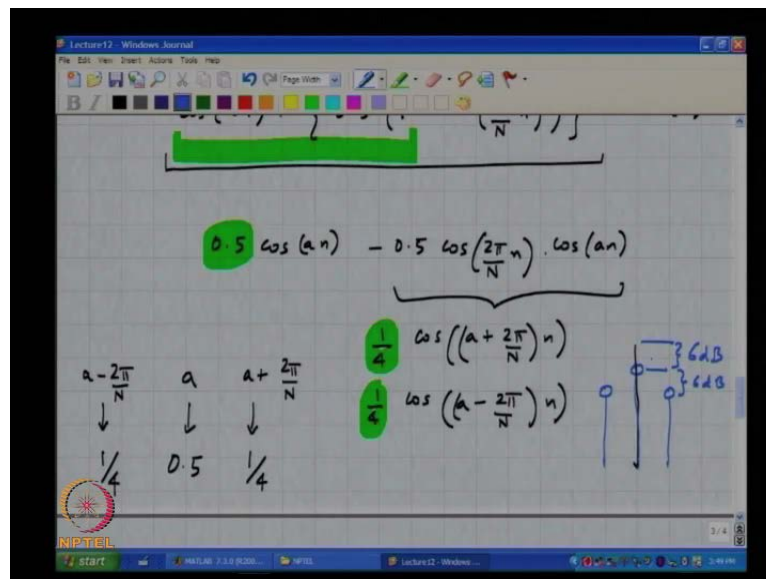 Lecture12 - Windows Journal
File Edit View Insert Actions Tools Help
Page Width
B I
0.5 cos(an) - 0.5 cos(2π/N n) . cos(an)
1/4 cos((a + 2π/N) n)
1/4 cos((a - 2π/N) n)
a - 2π/N a a + 2π/N
↓ ↓ ↓
1/4 0.5 1/4
} 6dB
} 6dB
NPTEL
3/4
start MATLAB 7.3.0 (R200... NPTEL Lecture12 - Windows ... 2:49 PM